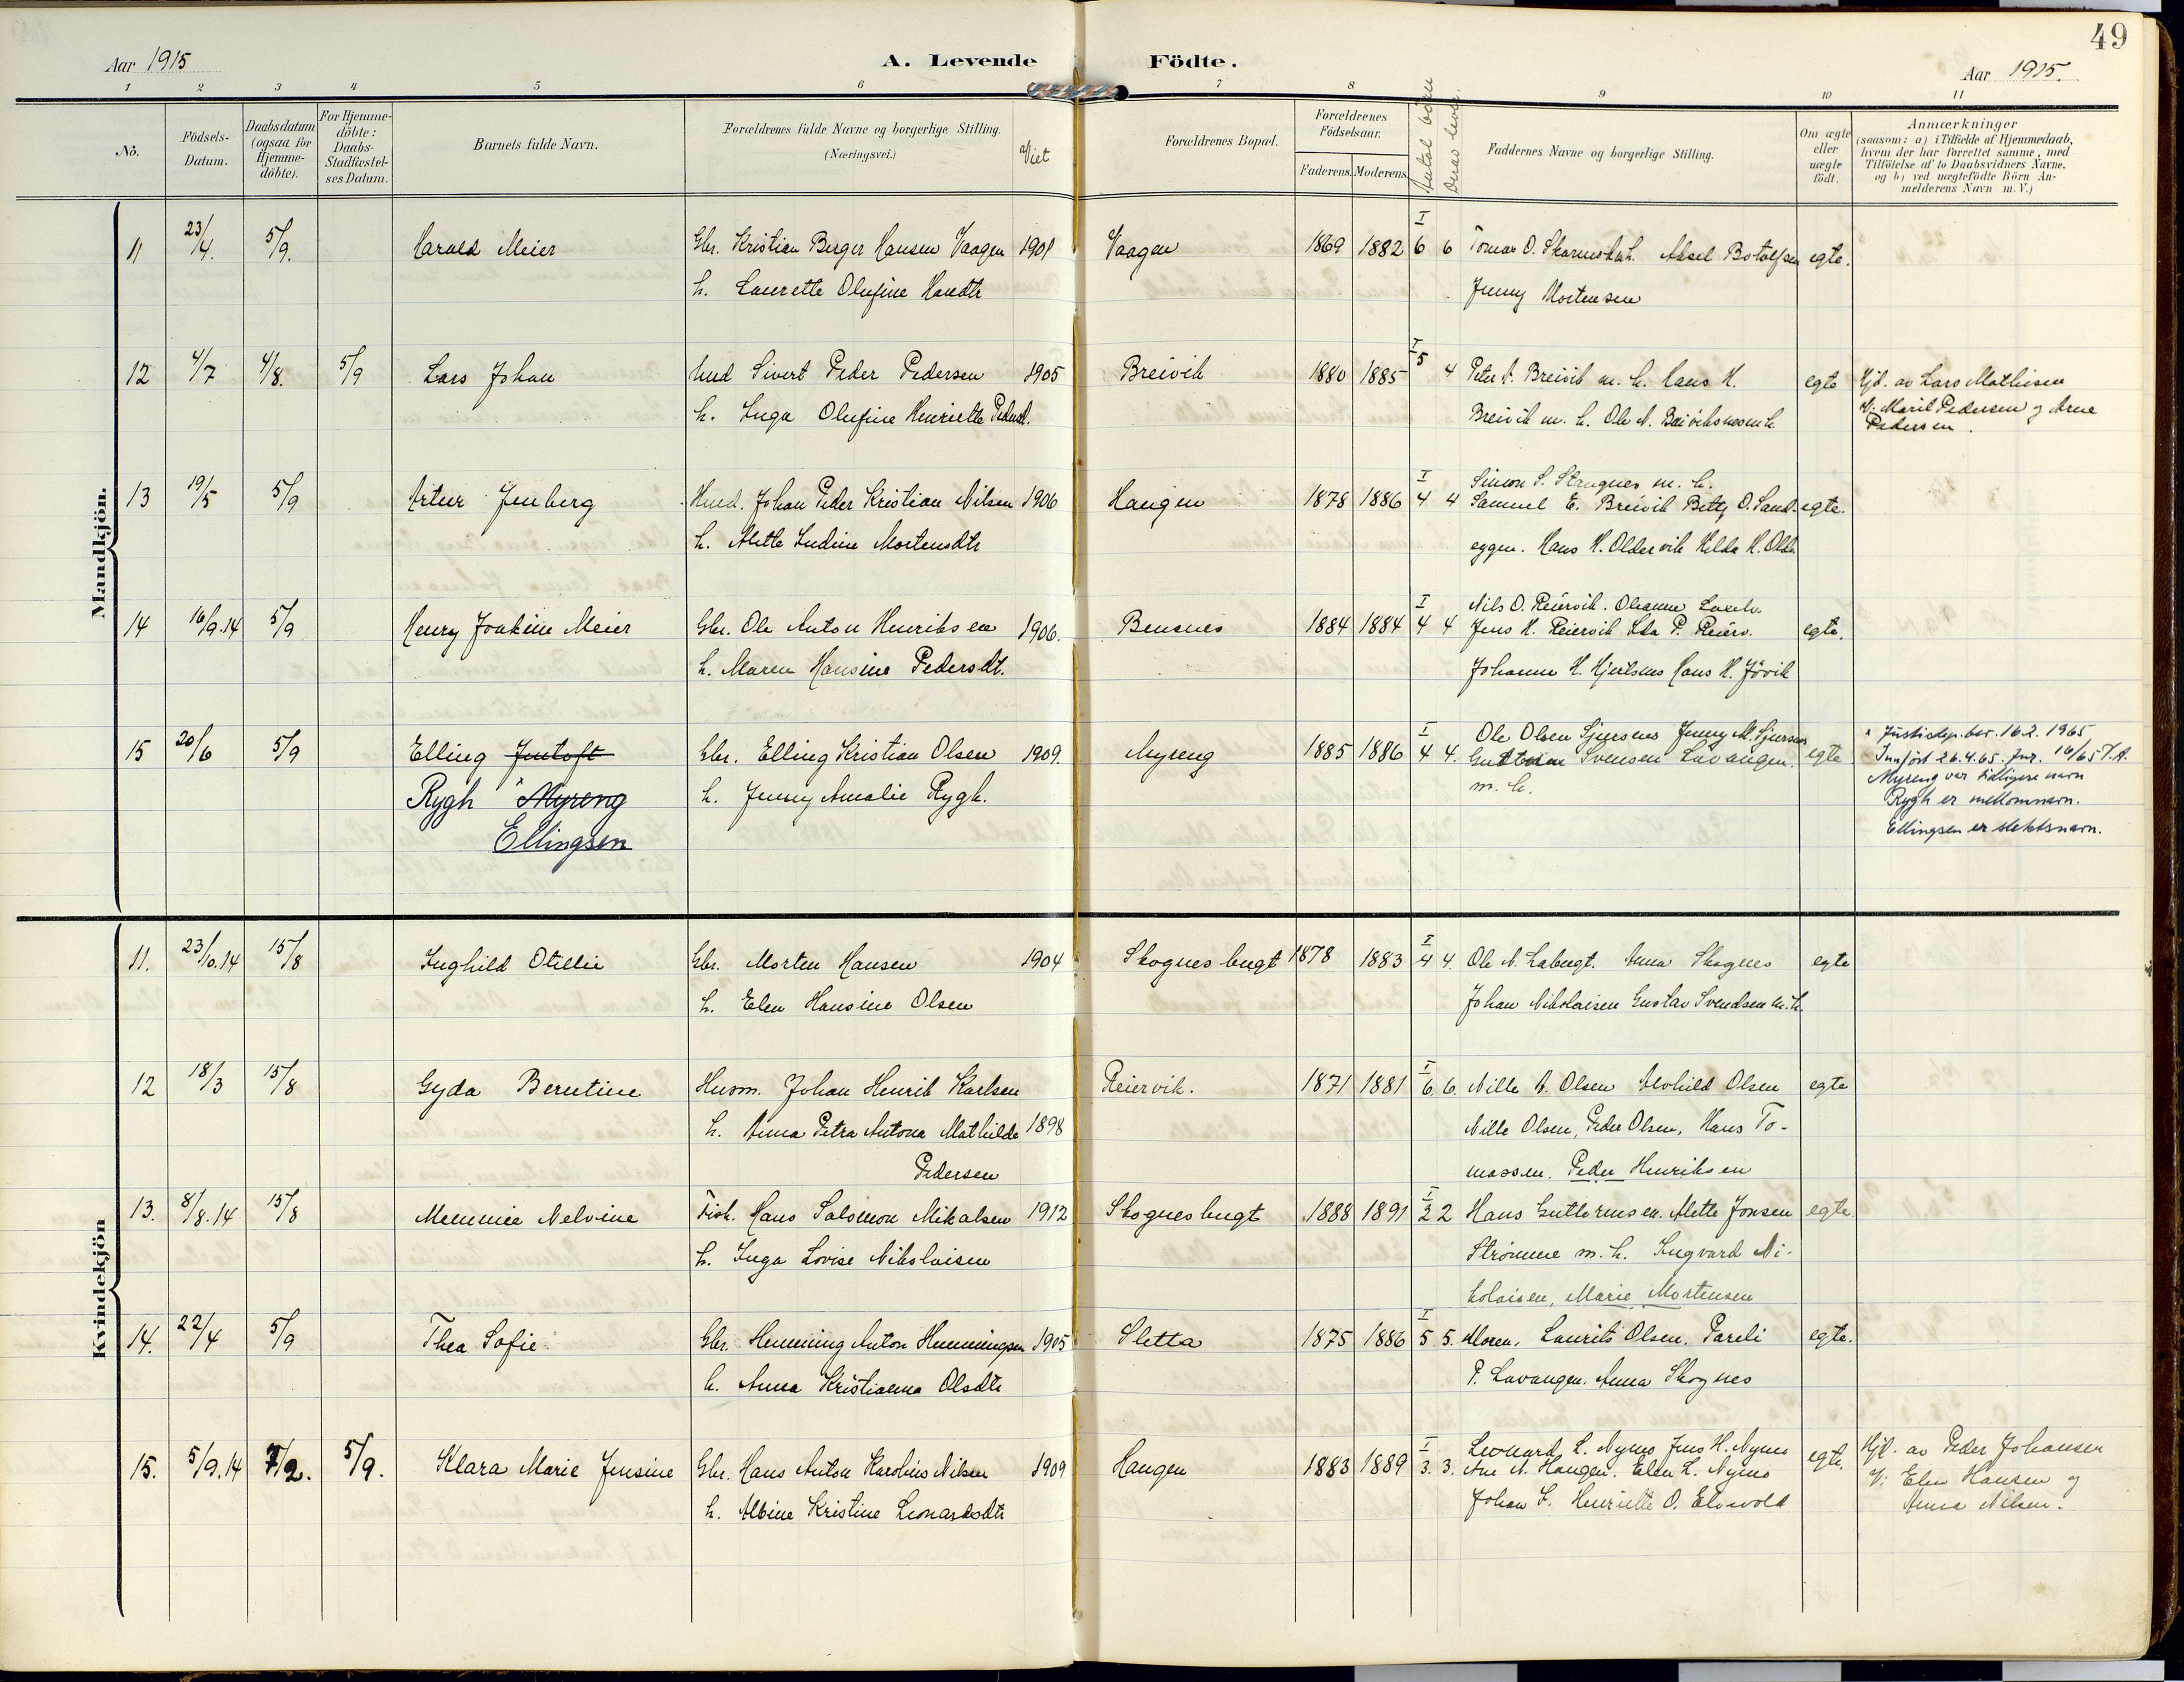 49
Aar 1915
A. Levende Födte.
Aar 1915.
1 2 3 4 5 6 7 8 9 10 11
No.
Födsels-Datum.
Daabsdatum (ogsaa for Hjemme-döbte).
For Hjemme-döbte: Daabs-Stadfæstel-ses Datum.
Barnets fulde Navn.
Forældrenes fulde Navne og borgerlige Stilling. (Næringsvei.)
Viet
Forældrenes Bopæl.
Forældrenes Födselsaar.
Faderens. Moderens.
Antal börn
Derav lever.
Faddernes Navne og borgerlige Stilling.
Om ægte eller uægte födt.
Anmærkninger
(saasom: a) i Tilfælde af Hjemmedaab,
hvem der har forrettet samme, med
Tilföielse af to Daabsvidners Navne.
og b) ved uægtefödte Börn An-
melderens Navn m. V.)
Mandkjön.
11 23/4. 5/9. Harald Meier Gbr. Kristian Berger Hansen Vaagen 1901 Vaagen 1869 1882 I 6 6 Tomas O. Aksel Botolfsen egte.
h. Laurette Olufine Hansdtr Jenny Mortensen
12 4/7 4/8. 5/9 Lars Johan Sivert Peder Pedersen 1905 Breivik 1880 1885 I 5 4 Peter A. Breivik m. h. Hans H. egte Hjd. av Lars Mathisen
h. Inga Olufine Henriette Breivik m. h. Ole N. V: Marit Pedersen og Arne
Pedersen.
13 19/5 5/9 Artur Jenberg Husd. Johan Peder Kristian Nilsen 1906 Haugen 1878 1886 I 4 4 Simon S. Stangnes m. h.
Samuel E. Breivik Betty O. Sand- egte.
h. Alette Ludine Mortensdtr eggen. Hans H. Oldervik Hilda H. Oldv.
14 16/9.14 5/9 Henry Joakine Meier Gbr. Ole Anton Henriksen 1906. Bensnes 1884 1884 I 4 4 Nils O. Reiervik. Oleanne
Jens H. Reiervik P. Reierv. egte.
h. Maren Hansine Pedersdt. Johanne H. Hjertsnes Hans H. Jövik
15 20/6 5/9 Elling Jentoft Gbr. Elling Kristian Olsen 1909. Myreng 1885 1886 I 4 4. Ole Olsen Sjursnes Jenny M. Sjursnes
Svensen Lavangen. egte
Rygh Myreng h. Jenny Amalie Rygh. m. h.
Ellingsen
x Justisdep. ber. 16.2.1965
Innfört 26.4.65. jnr. 16/65 T.A.
Myreng var tidligere navn
Rygh er mellomnavn.
Ellingsen er slektsnavn.
Kvindekjön
11. 23/10.14 15/8 Inghild Otillie Gbr. Morten Hansen 1904 Skognesbugt 1878 1883 I 4 4. Ole N. Labugt. Anna Skognes egte
h. Elen Hansine Olsen Johan Nikolaisen Gustav Svendsen m. h.
12 18/3 15/8 Gyda Berntine Husm. Johan Henrik Karlsen Reiervik. 1871 1881 I 6. 6. Nille A. Olsen Alvhild Olsen egte
h. Anna Petra Antona Mathilde 1898 Nille Olsen, Peder Olsen, Hans To-
Pedersen massen. Peder Henriksen
13. 8/8.14 15/8 Memmie Nelvine Fisk. Hans Salomon Mikalsen 1912 Skognesbugt 1888 1891 I 2 2 Hans Guttormsen. Alette Jonsen egte.
h. Inga Lovise Nikolaisen Strömme m. h. Ingvard Ni-
kolaisen, Marie Mortensen
14. 22/4 5/9 Thea Sofie Gbr. Henning Anton Henningsen 1905 Sletta 1875 1886 I 5 5. Moren, Laurits Olsen. Pareli egte.
h. Anna Kristianna Olsdtr P. Lavangen. Anna Skognes
15. 5/9.14 7/2. 5/9. Klara Marie Jensine Gbr. Hans Anton Karolius Nilsen 1909 Haugen 1883 1889 I 3. 3. Leonard L. Nymo Jens H. Nymo egte. Hjd. av Peder Johansen
Ane N. Haugen. Elen L. Nymo V: Elen Hansen og
h. Albine Kristine Leonardsdtr Johan L. Henriette O. Elvevold Anna Nilsen.